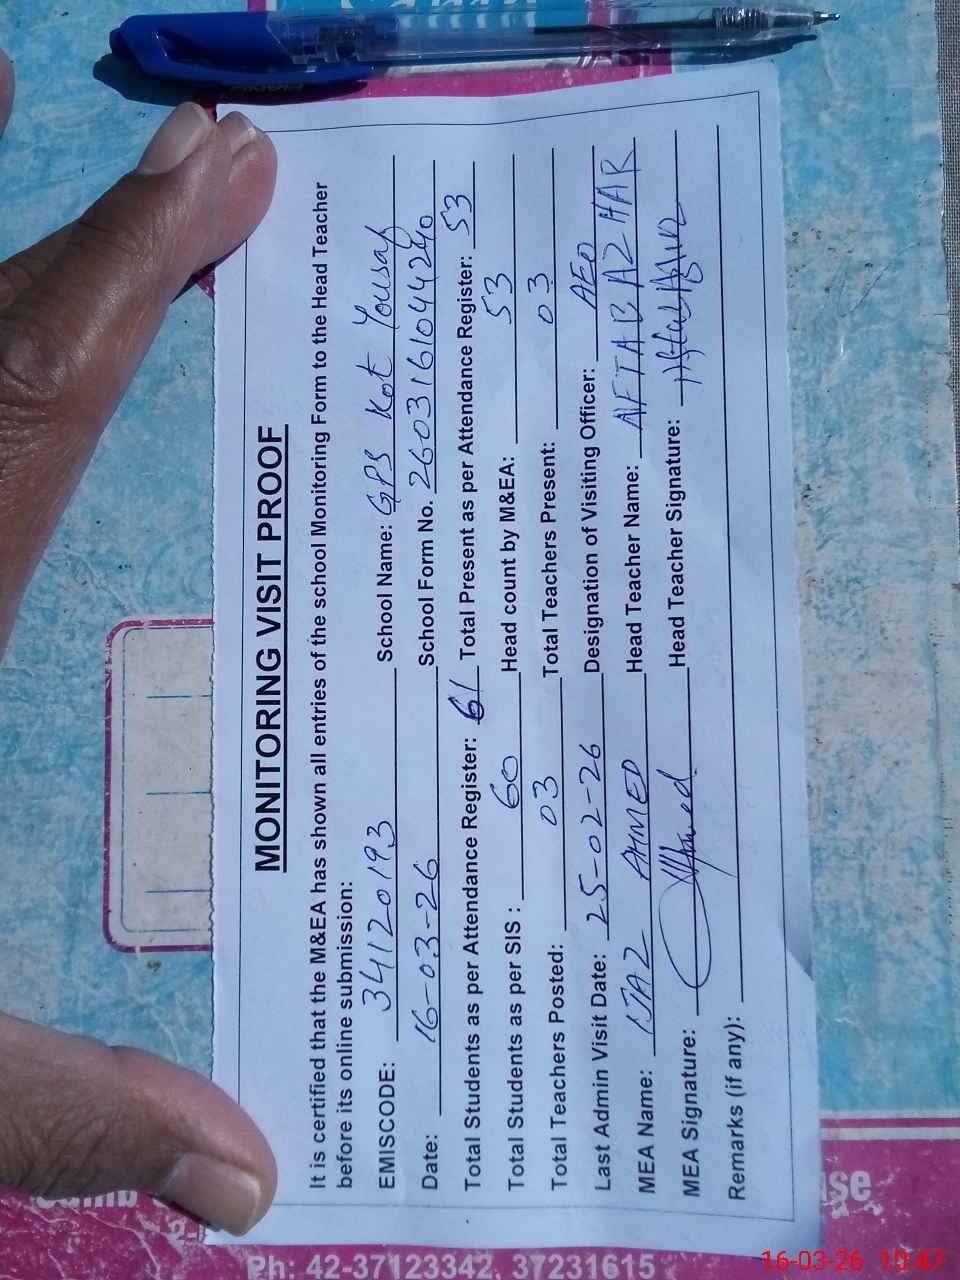 MONITORING VISIT PROOF
It is certified that the M&EA has shown all entries of the school Monitoring Form to the Head Teacher
before its online submission:
EMISCODE: 34120193 School Name: GPS Kot Yousaf
Date: 16-03-26 School Form No. 2603161044240
Total Students as per Attendance Register: 61 Total Present as per Attendance Register: 53
Total Students as per SIS : 60 Head count by M&EA: 53
Total Teachers Posted: 03 Total Teachers Present: 03
Last Admin Visit Date: 25-02-26 Designation of Visiting Officer: AEO
MEA Name: IJAZ AHMED Head Teacher Name: AFTAB AZHAR
MEA Signature: Head Teacher Signature:
Remarks (if any):
Ph: 42-37123342, 37231615
16-03-26 10:47